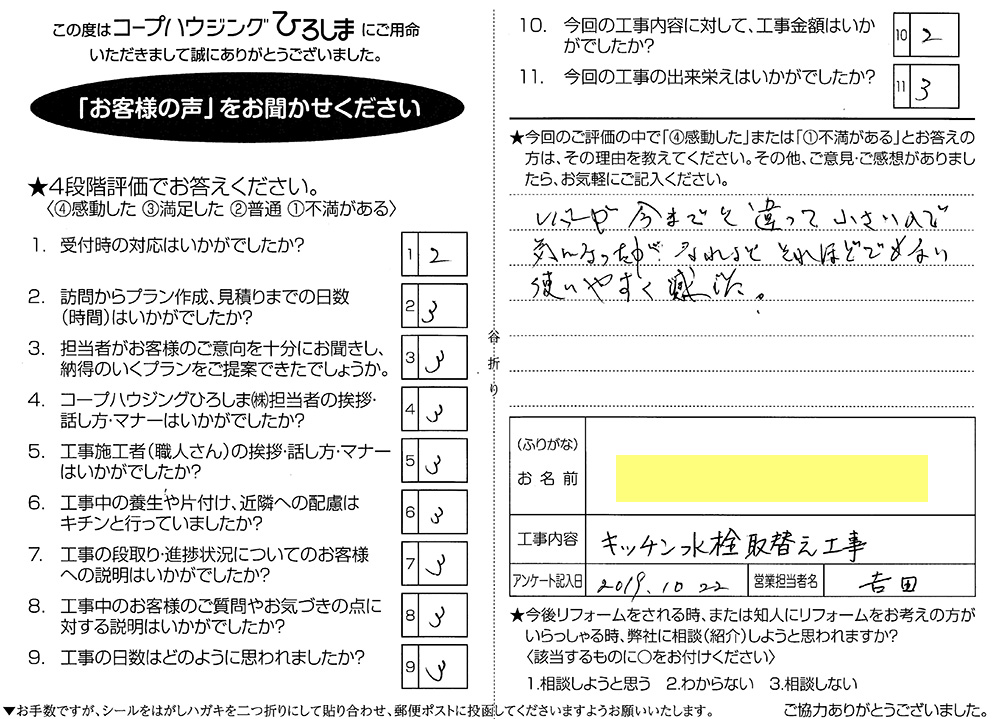 この度はコープハウジングひろしまにご用命
いただきまして誠にありがとうございました。
「お客様の声」をお聞かせください
★4段階評価でお答えください。
〈④感動した ③満足した ②普通 ①不満がある〉
1. 受付時の対応はいかがでしたか?
1 2
2. 訪問からプラン作成、見積りまでの日数
（時間）はいかがでしたか?
2 3
3. 担当者がお客様のご意向を十分にお聞きし、
納得のいくプランをご提案できたでしょうか。
3 3
4. コープハウジングひろしま㈱担当者の挨拶・
話し方・マナーはいかがでしたか?
4 3
5. 工事施工者（職人さん）の挨拶・話し方・マナー
はいかがでしたか?
5 3
6. 工事中の養生や片付け、近隣への配慮は
キチンと行っていましたか?
6 3
7. 工事の段取り・進捗状況についてのお客様
への説明はいかがでしたか?
7 3
8. 工事中のお客様のご質問やお気づきの点に
対する説明はいかがでしたか?
8 3
9. 工事の日数はどのように思われましたか?
9 3
▼お手数ですが、シールをはがしハガキを二つ折りにして貼り合わせ、郵便ポストに投函してくださいますようお願いいたします。
谷折り
10. 今回の工事内容に対して、工事金額はいか
がでしたか?
10 2
11. 今回の工事の出来栄えはいかがでしたか?
11 3
★今回のご評価の中で「④感動した」または「①不満がある」とお答えの
方は、その理由を教えてください。その他、ご意見・ご感想がありまし
たら、お気軽にご記入ください。
レバーが今までと違って小さいので
気になったが なれると それほどでもない
使いやすく感じた。
（ふりがな）
お名前
工事内容 キッチン水栓取替え工事
アンケート記入日 2019.10.22 営業担当者名 吉田
★今後リフォームをされる時、または知人にリフォームをお考えの方が
いらっしゃる時、弊社に相談（紹介）しようと思われますか?
〈該当するものに○をお付けください〉
1.相談しようと思う 2.わからない 3.相談しない
ご協力ありがとうございました。